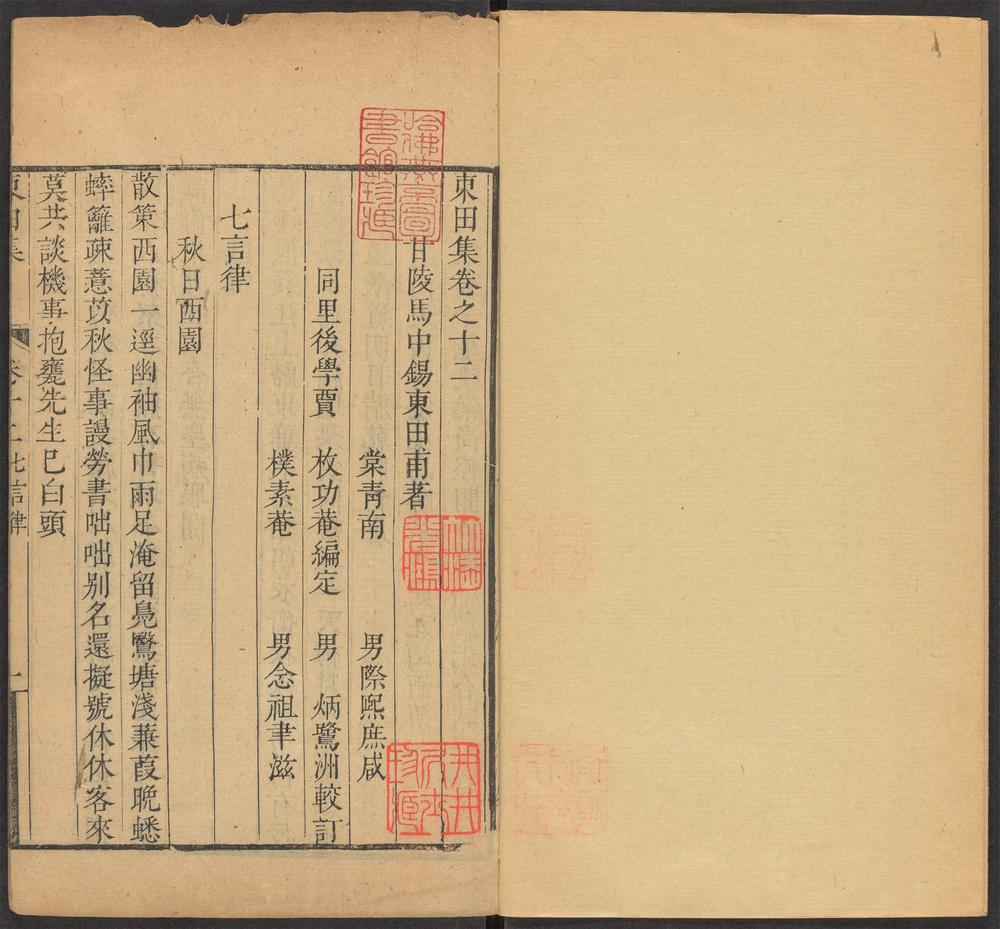 東田集卷之十二
甘陵馬中錫東田甫著
棠青南 男際熙庶咸
同里後學賈 枚功菴編定 男 炳鷺洲較訂
樸素菴 男念祖聿滋
七言律
秋日西園
散策西園一逕幽袖風巾雨足淹留鳧鷖塘淺蒹葭晩蟋
蟀籬疎薏苡秋怪事謾勞書咄咄别名還擬號休休客來
莫共談機事抱甕先生已白頭
東田集 卷十二七言律 一
哈佛燕京圖書館珍藏